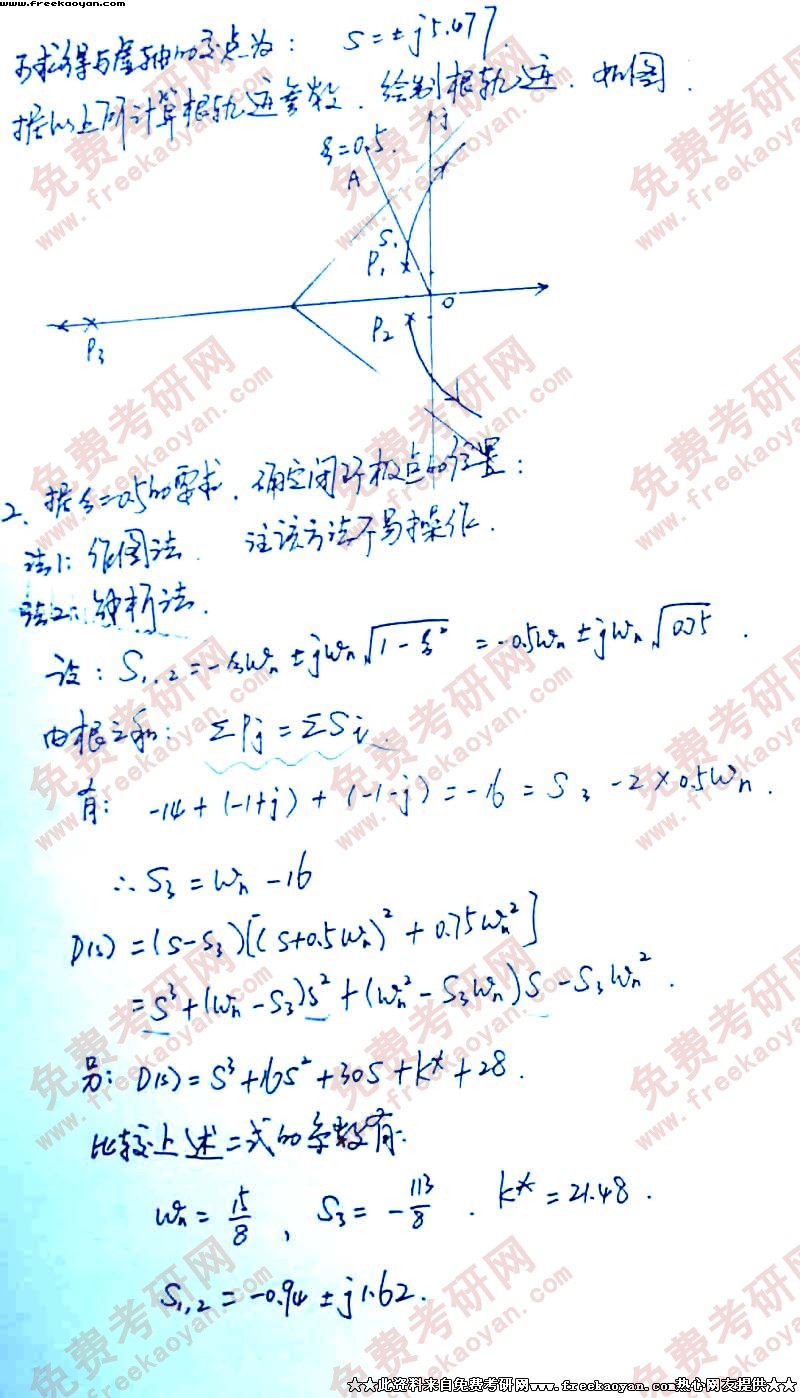 www.freekaoyan.com
可求得与虚轴的交点为: S=±j5.477.
据以上所计算根轨迹参数, 绘制根轨迹, 如图.
j
ξ=0.5.
A
S₁
P₁
O
P₂
P₃
2. 据ξ=0.5的要求, 确定闭环极点的位置:
法1: 作图法. 注该方法不易操作.
法2: 解析法.
设: S₁,₂=-ξωₙ±jωₙ√(1-ξ²) =-0.5ωₙ±jωₙ√0.75 .
由根之和: ΣPj=ΣSi
有: -14+(-1+j)+(-1-j)=-16=S₃-2×0.5ωₙ.
∴S₃=ωₙ-16
D(s)=(S-S₃)[(S+0.5ωₙ)²+0.75ωₙ²]
=S³+(ωₙ-S₃)S²+(ωₙ²-S₃ωₙ)S-S₃ωₙ².
另: D(s)=S³+16S²+30S+K*+28.
比较上述二式的系数有:
ωₙ=15/8, S₃=-113/8. K*=21.48.
S₁,₂=-0.94±j1.62.
免费考研网
www.freekaoyan.com
★★此资料来自免费考研网www.freekaoyan.com热心网友提供★★